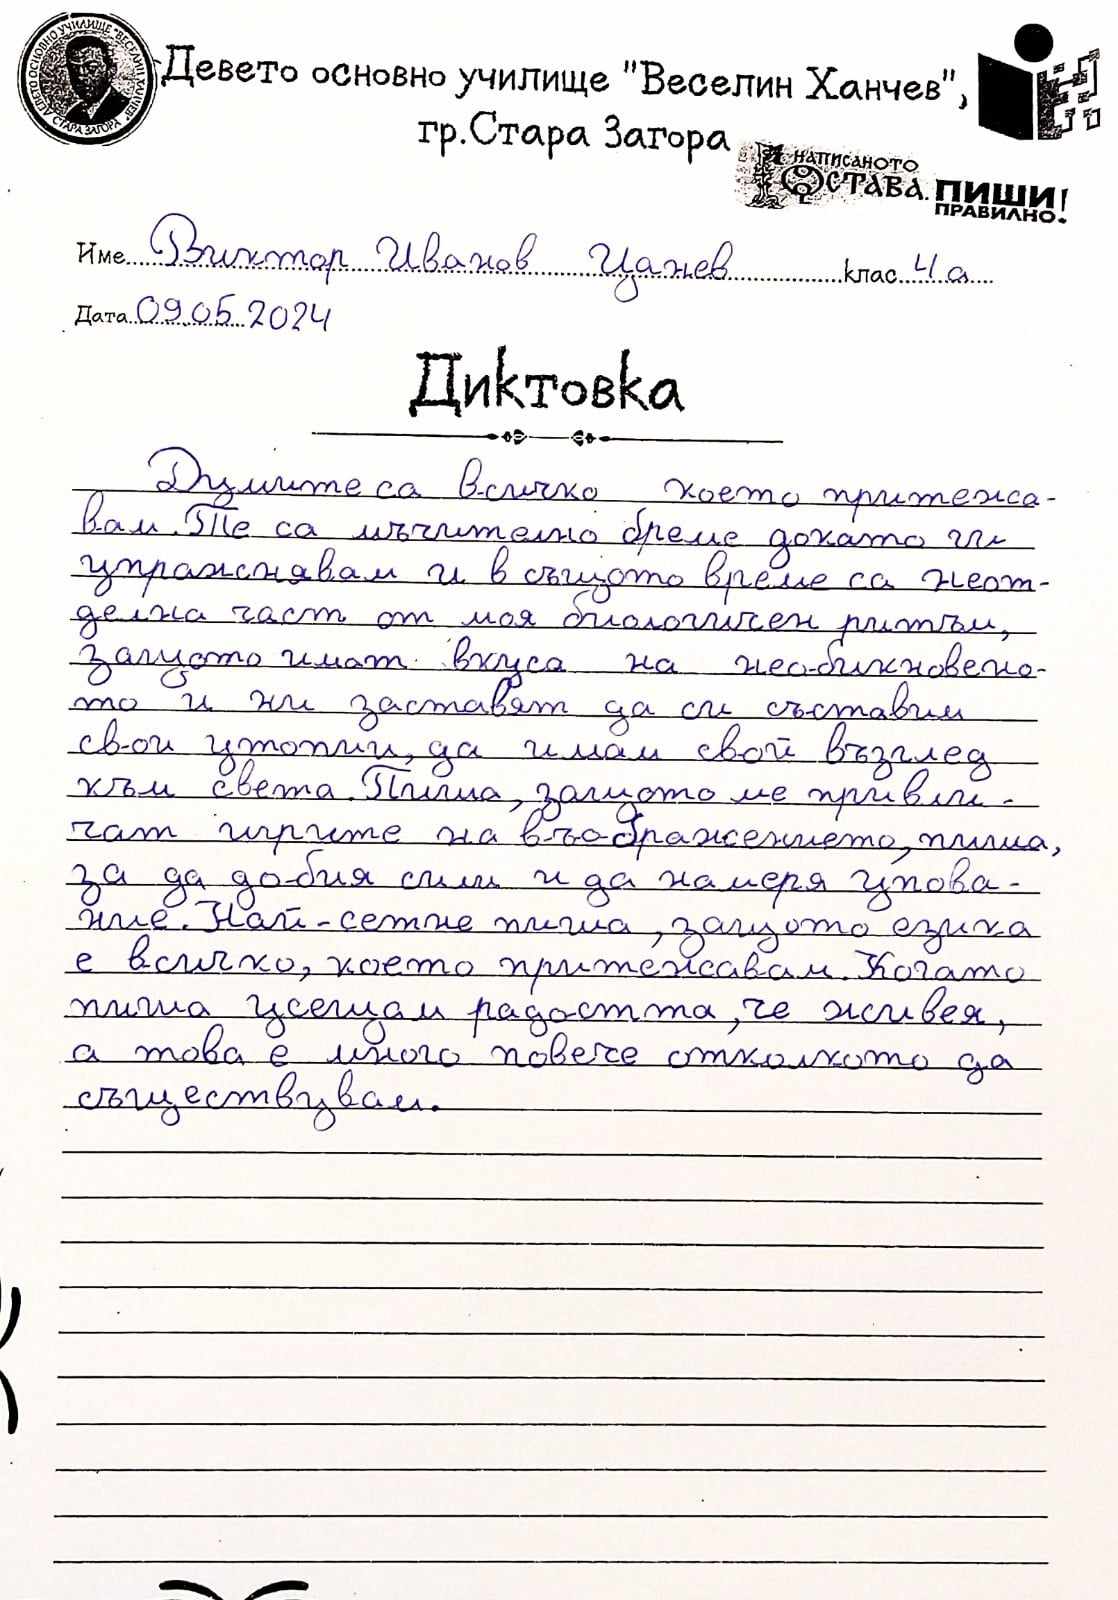 ДЕВЕТО ОСНОВНО УЧИЛИЩЕ "ВЕСЕЛИН ХАНЧЕВ"
СТАРА ЗАГОРА
Девето основно училище "Веселин Ханчев",
гр.Стара Загора
НАПИСАНОТО
ОСТАВА.
ПИШИ
ПРАВИЛНО!
Име Виктор Иванов Цанев клас 4 а
Дата 09.05.2024
Диктовка
Думите са всичко което притежа-
вам. Те са мъчително бреме докато ги
упражнявам и в същото време са неот-
делна част от моя биологичен ритъм,
защото имат вкуса на необикновено-
то и ни заставят да си съставим
свои утопии, да имам свой възглед
към света. Пиша, защото ме привли-
чат игрите на въображението, пиша,
за да добия сили и да намеря упова-
ние. Най-сетне пиша, защото езика
е всичко, което притежавам. Когато
пиша усещам радостта, че живея,
а това е много повече отколкото да
съществувам.